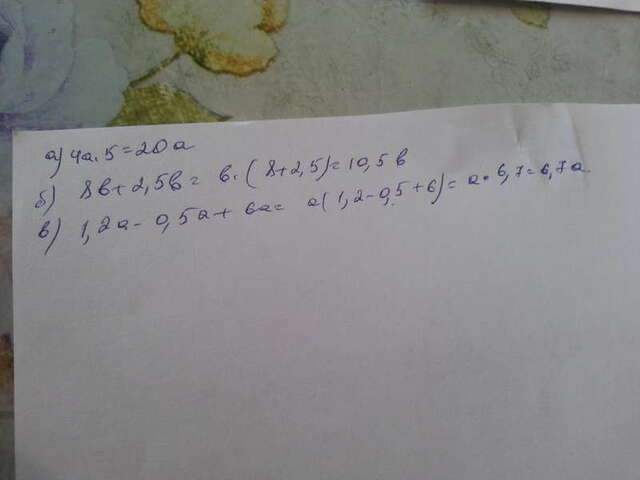 а) 4а·5=20а
б) 8в+2,5в= в·(8+2,5)=10,5в
в) 1,2а-0,5а+6а= а(1,2-0,5+6)=а·6,7=6,7а.